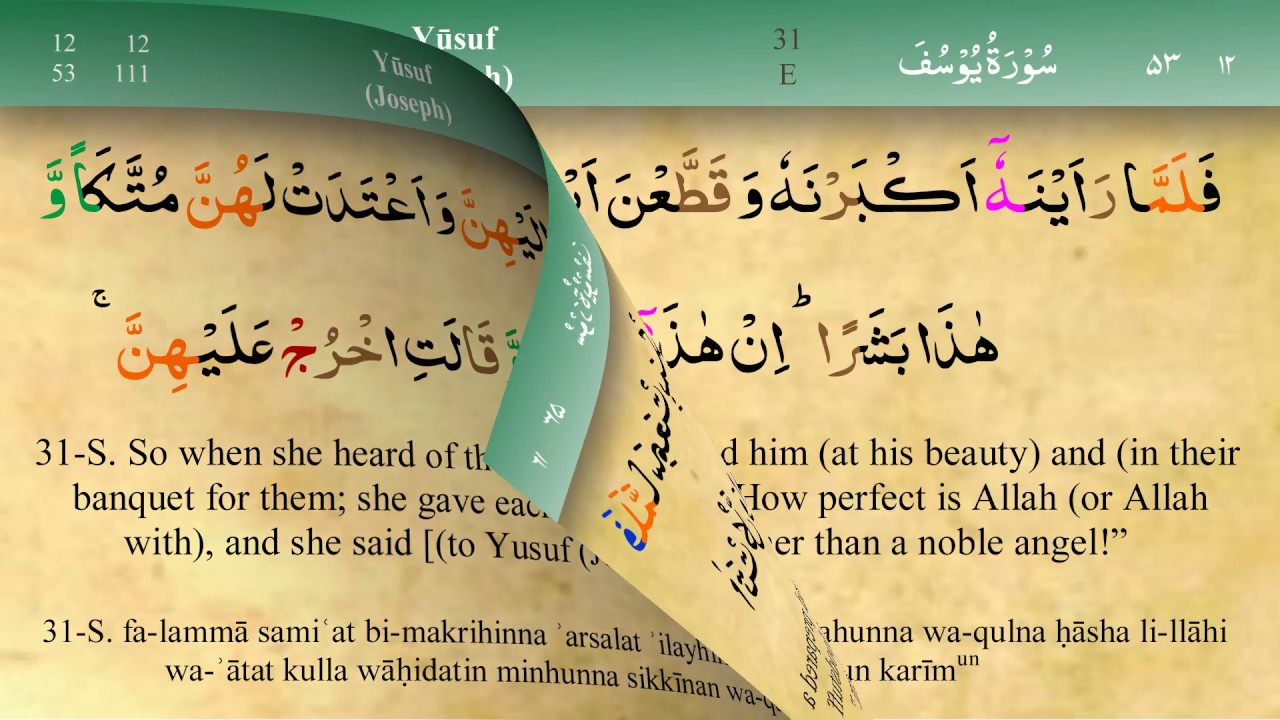 12 12 Yūsuf 31 سُوْرَةُ يُوْسُفَ ۵۳ ۱۲
53 111 Yūsuf E
(Joseph)
فَلَمَّا رَاَيْنَهٗۤ اَكْبَرْنَهٗ وَقَطَّعْنَ لَيْهِنَّ وَاَعْتَدَتْ لَهُنَّ مُتَّكَاً وَّ
هٰذَا بَشَرًا ؕ اِنْ هٰذَاۤ قَالَتِ اخْرُجْ عَلَيْهِنَّ ۚ
31-S. So when she heard of th d him (at his beauty) and (in their
banquet for them; she gave each How perfect is Allah (or Allah
with), and she said [(to Yusuf (J er than a noble angel!”
31-S. fa-lammā samiʿat bi-makrihinna ʾarsalat ʾilayhi ahunna wa-qulna ḥāsha li-llāhi
wa-ʾātat kulla wāḥidatin minhunna sikkīnan wa-q un karīmun